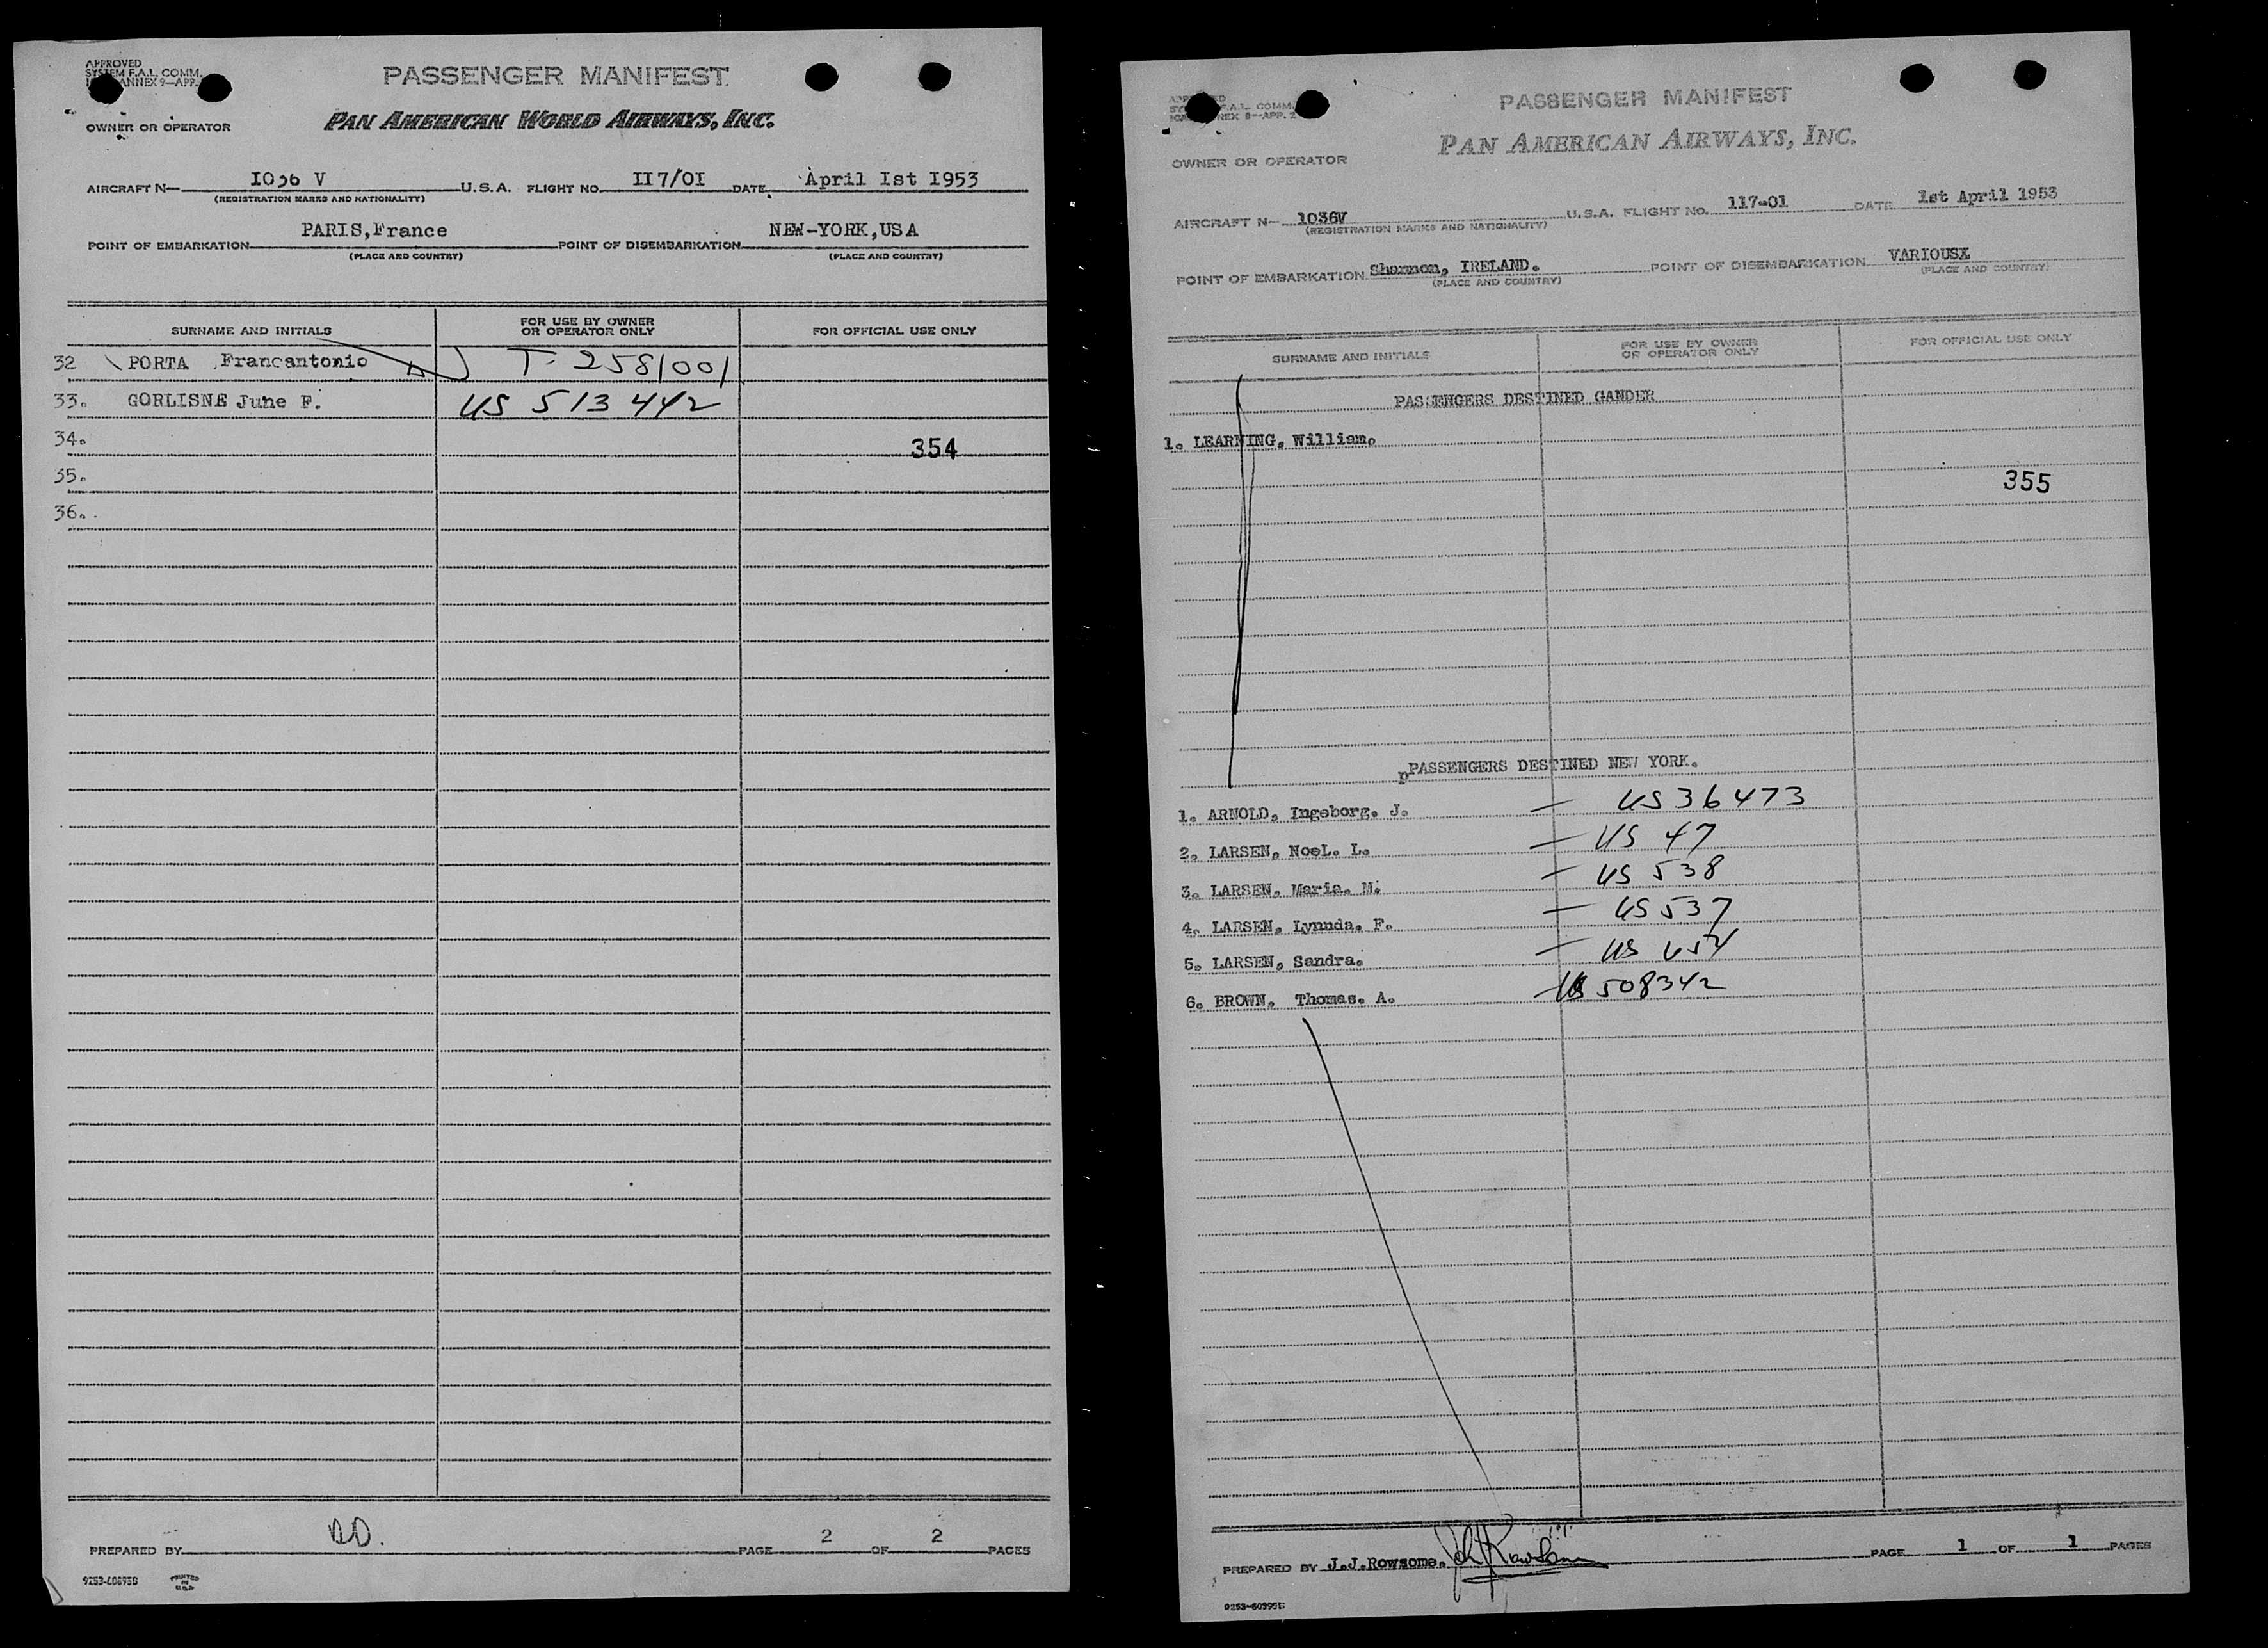 APPROVED
SYSTEM F.A.L. COMM.
ANNEX 9—APP.
PASSENGER MANIFEST
OWNER OR OPERATOR
PAN AMERICAN WORLD AIRWAYS, INC.
AIRCRAFT N— I036 V U.S.A. FLIGHT NO. II7/OI DATE April Ist I953
(REGISTRATION MARKS AND NATIONALITY)
POINT OF EMBARKATION PARIS,France POINT OF DISEMBARKATION NEW-YORK,USA
(PLACE AND COUNTRY) (PLACE AND COUNTRY)
SURNAME AND INITIALS FOR USE BY OWNER OR OPERATOR ONLY FOR OFFICIAL USE ONLY
32 PORTA Francantonio T- 258/001
33. GORLISNE June F. US 513442
34. 354
35.
36.
PREPARED BY PAGE 2 OF 2 PAGES
PRINTED IN U.S.A.
PASSENGER MANIFEST
PAN AMERICAN AIRWAYS, INC.
OWNER OR OPERATOR
AIRCRAFT N— 1036V U.S.A. FLIGHT NO. 117-01 DATE 1st April 1953
(REGISTRATION MARKS AND NATIONALITY)
POINT OF EMBARKATION Shannon, IRELAND. POINT OF DISEMBARKATION VARIOUSX
(PLACE AND COUNTRY) (PLACE AND COUNTRY)
SURNAME AND INITIALS FOR USE BY OWNER OR OPERATOR ONLY FOR OFFICIAL USE ONLY
PASSENGERS DESTINED GANDER
1. LEARNING, William.
355
pPASSENGERS DESTINED NEW YORK.
1. ARNOLD, Ingeborg. J. — US 36473
2. LARSEN, NoeL. L. — US 47
3. LARSEN, Maria. M. — US 538
4. LARSEN, Lynnda. F. — US 537
5. LARSEN, Sandra. — US
6. BROWN, Thomas. A. — US 508342
PREPARED BY J.J.Rowsome. PAGE 1 OF 1 PAGES